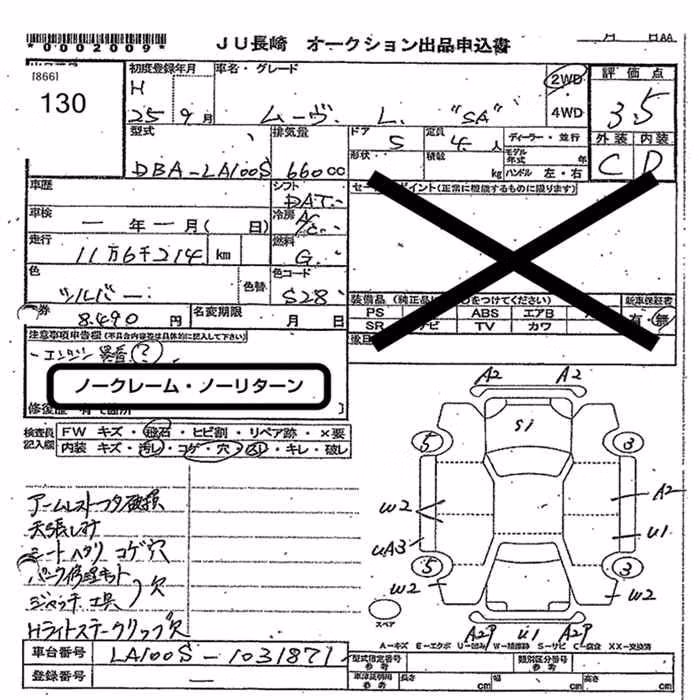 *0002009*
JU長崎 オークション出品申込書
[866]
130
初度登録年月
H
25 9月
車名・グレード
ムーヴ L "SA"
2WD
4WD
評価点
3.5
外装 内装
C D
型式
DBA-LA100S
排気量
660cc
ドア
5
定員
4人
ディーラー・並行
形状
積載
kg
モデル年式 年
ハンドル 左・右
車歴
シフト
DAT
車検
一年一月(日)
冷房
A/C
走行
11万6千214 km
燃料
G
色
シルバー
色替
色コード
S28
セールスポイント(正常に機能するものに限ります)
装備品(純正品に○をつけてください)
PS ABS エアB
SR TV カワ
新車保証書
有・無
券
8.490円
名変期限
月 日
注意事項申告欄(不具合内容等は具体的に記入して下さい)
エンジン異音(?)
ノークレーム・ノーリターン
修復歴 有
検査員記入欄
FW キズ・飛石・ヒビ割・リペア跡・×要
内装 キズ・汚レ・コゲ・穴・凹ミ・キレ・破レ
アームレストフタ破損
天張しみ
シートヘタリ コゲ穴
パンク修理キット
ジャッキ 工具
欠
Hライトステークリップ欠
A2 A2
S1
5 3
W2
A2
U1
UA3
5 3
W2 W2
A2P U1 A2P
スペア
A=キズ E=エクボ U=凹ミ W=補修跡 S=サビ C=腐食 XX=交換済
車台番号
LA100S-1031871
登録番号
一
型式指定番号 参考
類別区分番号 参考
車体証明用 参考
長さ cm 幅 cm 高さ cm